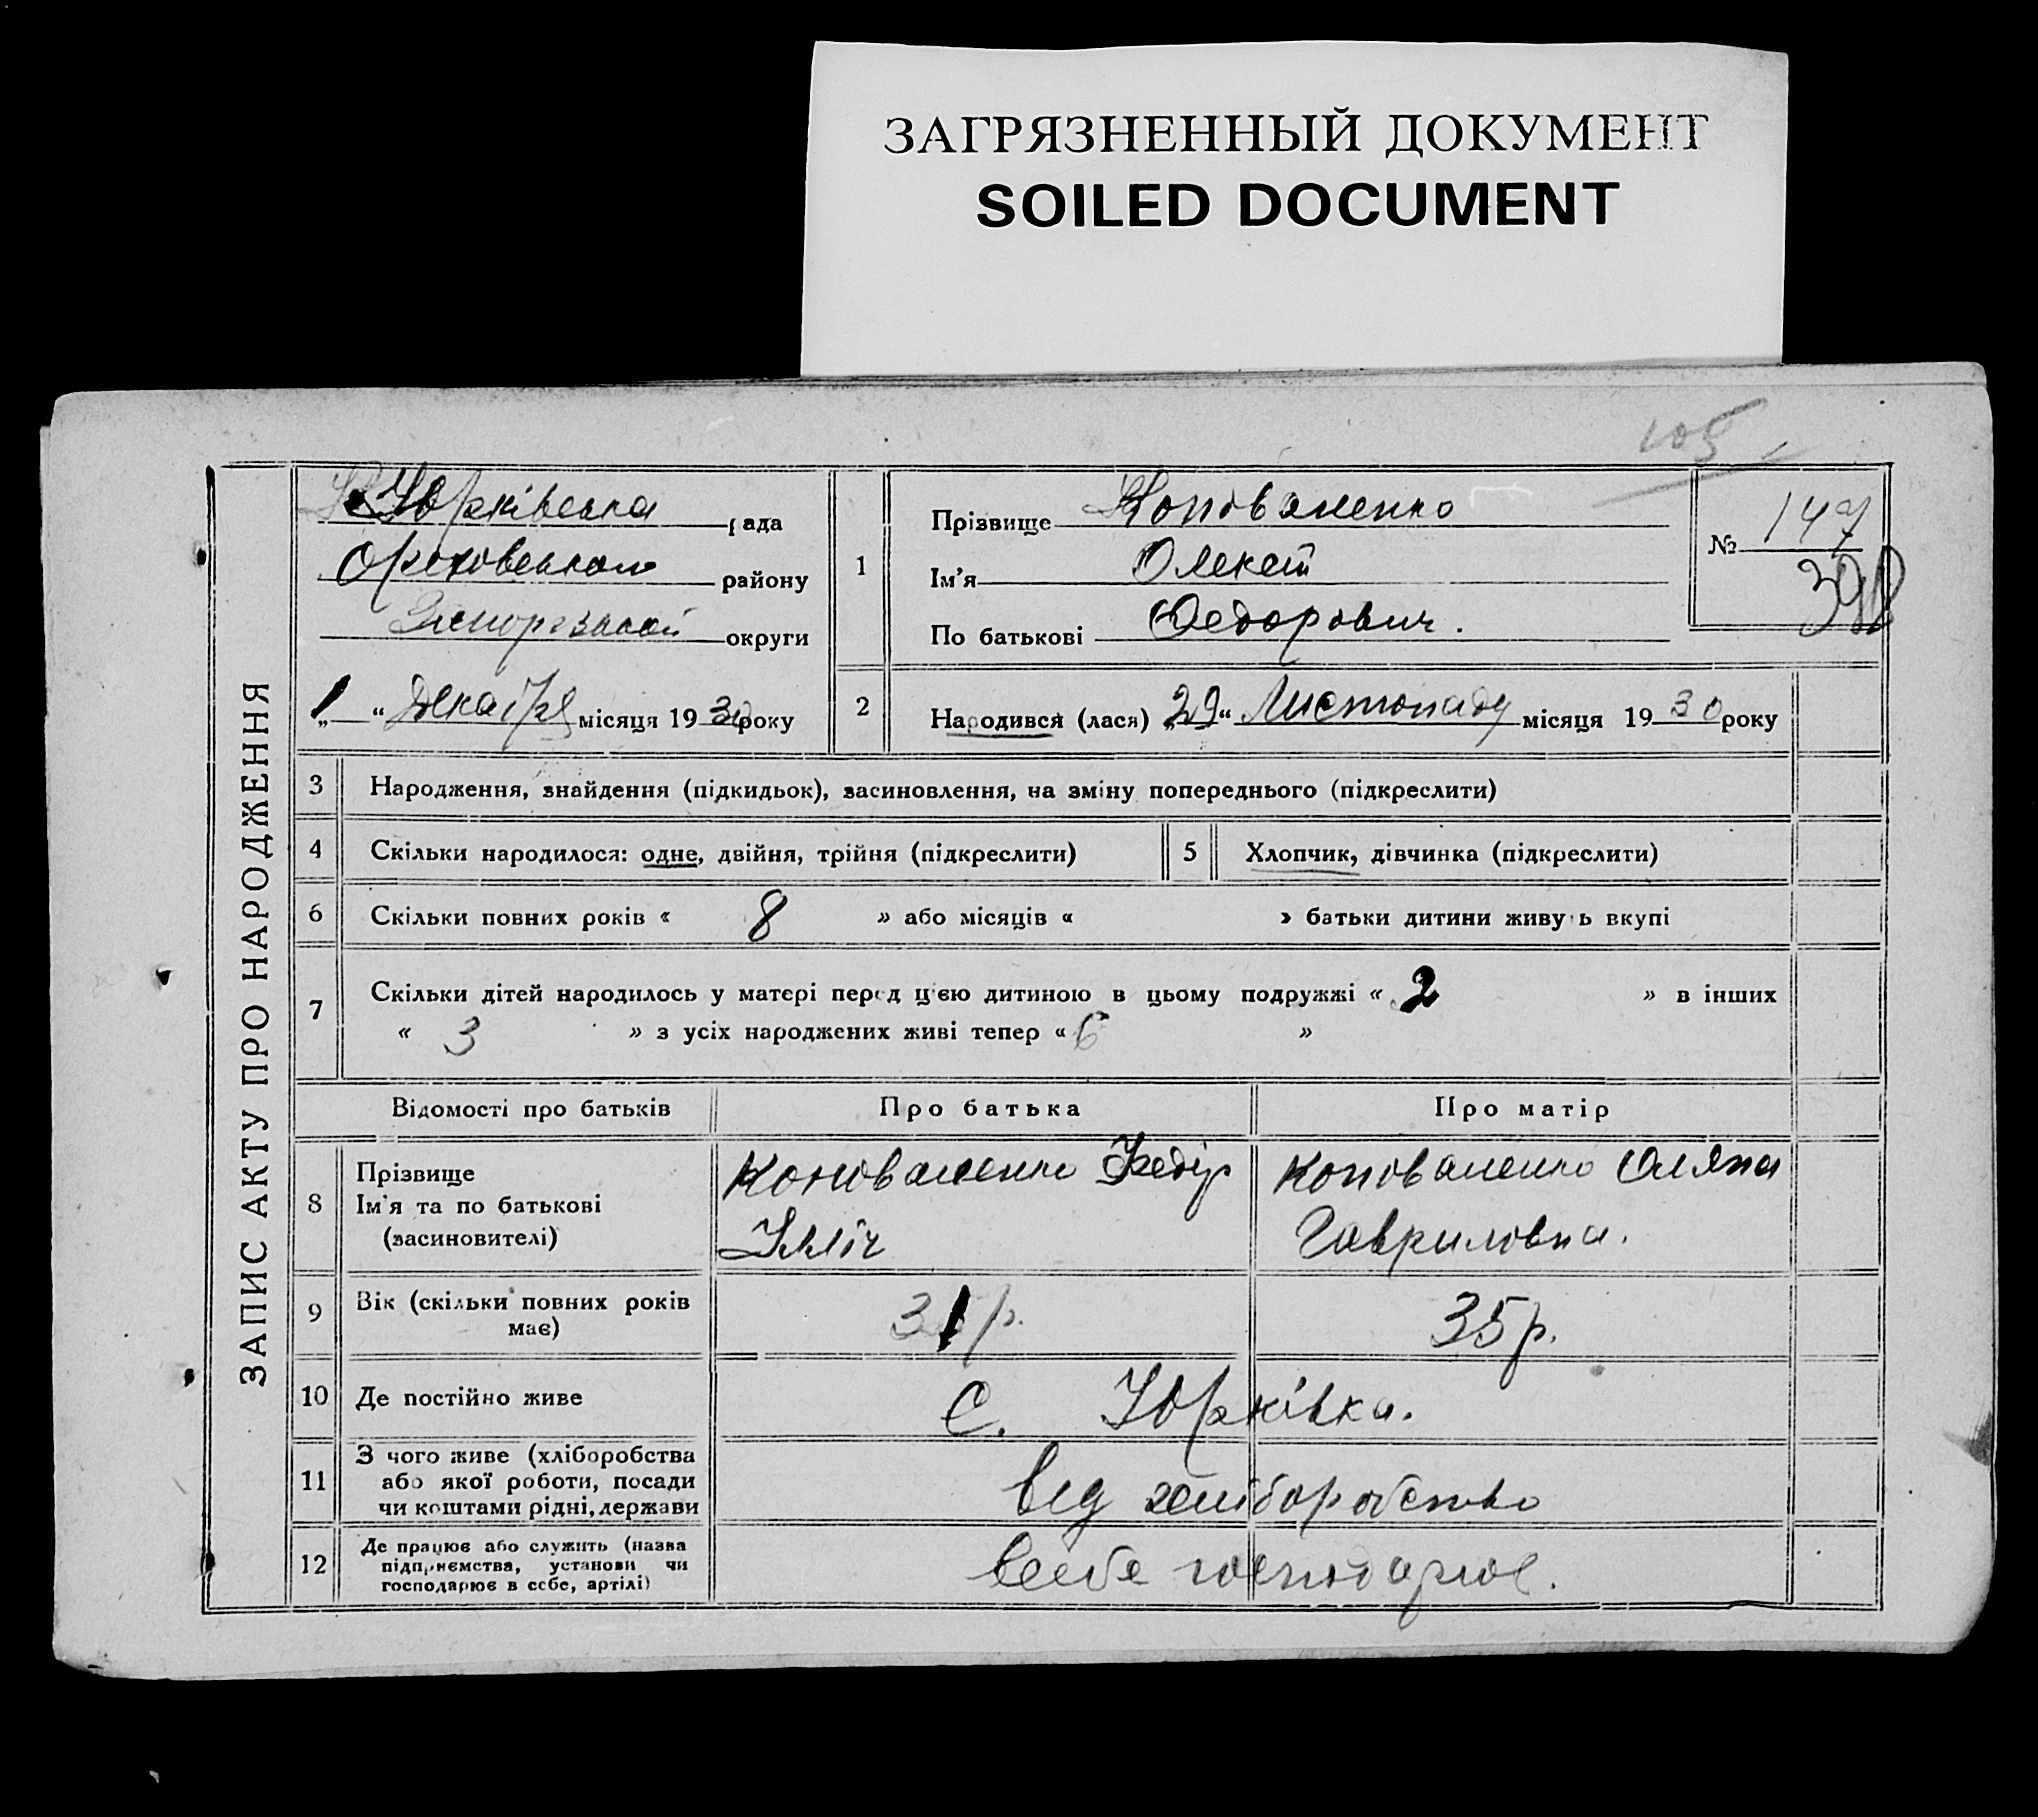 ЗАГРЯЗНЕННЫЙ ДОКУМЕНТ
SOILED DOCUMENT
108
ЗАПИС АКТУ ПРО НАРОДЖЕННЯ
Юрківська рада
Ореховського району
Запорізької округи
„1“ Декабря місяця 1930 року
1
Прізвище Коноваленко
Ім’я Олексій
По батькові Федорович.
№ 147
398
2 Народився (лася) „29“ Листопаду місяця 1930 року
3 Народження, знайдення (підкидьок), засиновлення, на зміну попереднього (підкреслити)
4 Скільки народилося: одне, двійня, трійня (підкреслити) 5 Хлопчик, дівчинка (підкреслити)
6 Скільки повних років « 8 » або місяців « » батьки дитини живуть вкупі
7 Скільки дітей народилось у матері перед цією дитиною в цьому подружжі « 2 » в інших
« 3 » з усіх народжених живі тепер « 6 »
Відомості про батьків Про батька Про матір
8 Прізвище
Ім’я та по батькові
(засновителі)
Коноваленко Федір
Ілліч
Коноваленко Оляна
Гавриловна.
9 Вік (скільки повних років
має)
31 р. 35 р.
10 Де постійно живе с. Юрківка.
11 З чого живе (хліборобства
або якої роботи, посади
чи коштами рідні, держави
від хліборобство
12 Де працює або служить (назва
підприємства, установи чи
господарює в себе, артілі)
всебе господарює.